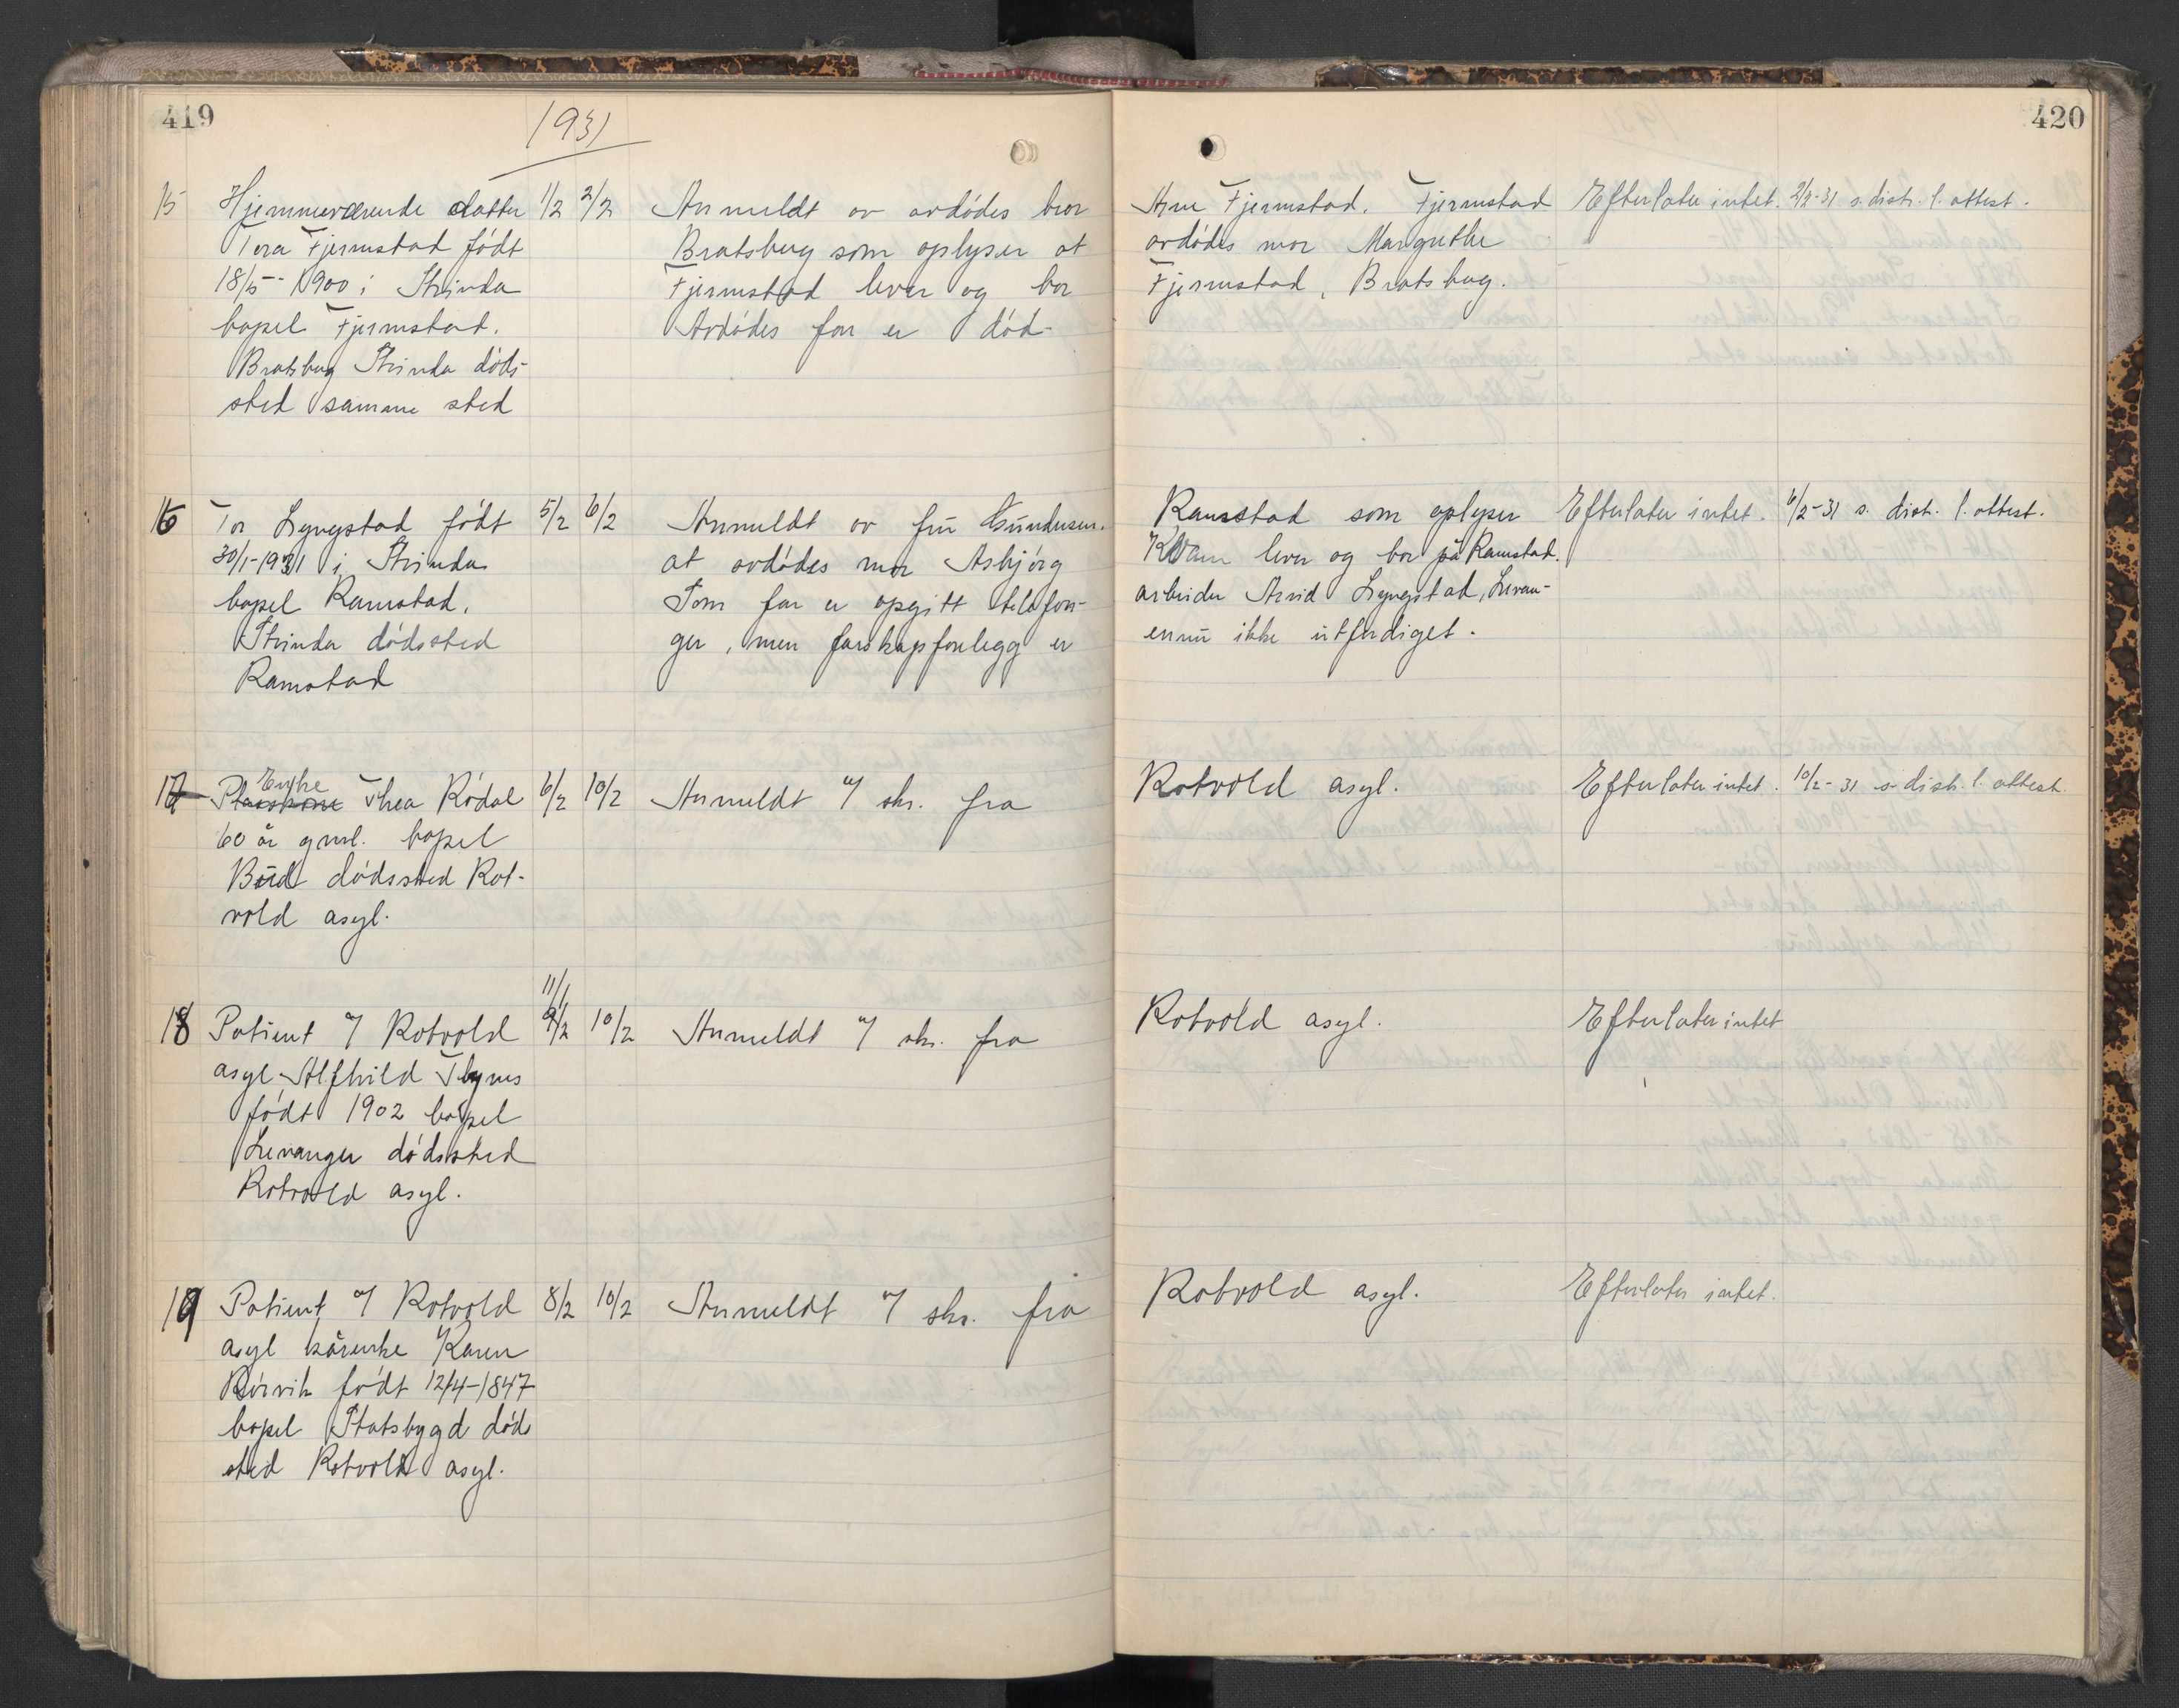 419
1931
420
15 Hjemmeværende datter 1/2 2/2 Anmeldt av avdødes bror Arne Fjermstad. Fjermstad Efterlater intet. 2/2-31 s. distr. l. attest.
Tora Fjermstad født Bratsberg som oplyser at avdødes mor Margrethe
18/5-1900 i Strinda Fjermstad lever og bor Fjermstad, Bratsberg.
bopel Fjermstad. Avdødes far er død-
Bratsberg Strinda døds-
sted samme sted
16 Tor Lyngstad født 5/2 6/2 Anmeldt av frü Gündusen. Ramstad som oplyser Efterlater intet. 6/2-31 s. distr. l. attest.
30/1-1931 i Strinda at avdødes mor Asbjørg Kvam lever og bor på Ramstad.
bopel Ramstad, Som far er opgitt telefon- arbeider Arvid Lyngstad, Levan-
Strinda dødssted ger, men farskapforelegg er ennü ikke ütferdiget.
Ramstad
17 Enke Thea Rødal 6/2 10/2 Anmeldt o/ skr. fra Rotvold asyl. Efterlater intet. 10/2-31 s. distr. l. attest.
60 år gml. bopel
Büd dødssted Rot-
vold asyl.
11/1
18 Patient o/ Rotvold 9/2 10/2 Anmeldt o/ skr. fra Rotvold asyl. Efterlater intet
asyl Alfhild Thynes
født 1902 bopel
Levanger dødssted
Rotvold asyl.
19 Patient o/ Rotvold 8/2 10/2 Anmeldt o/ skr. fra Rotvold asyl. Efterlater intet.
asyl kårenke Karen
Rørvik født 12/4-1847
bopel Statsbygd døds
sted Rotvold asyl.